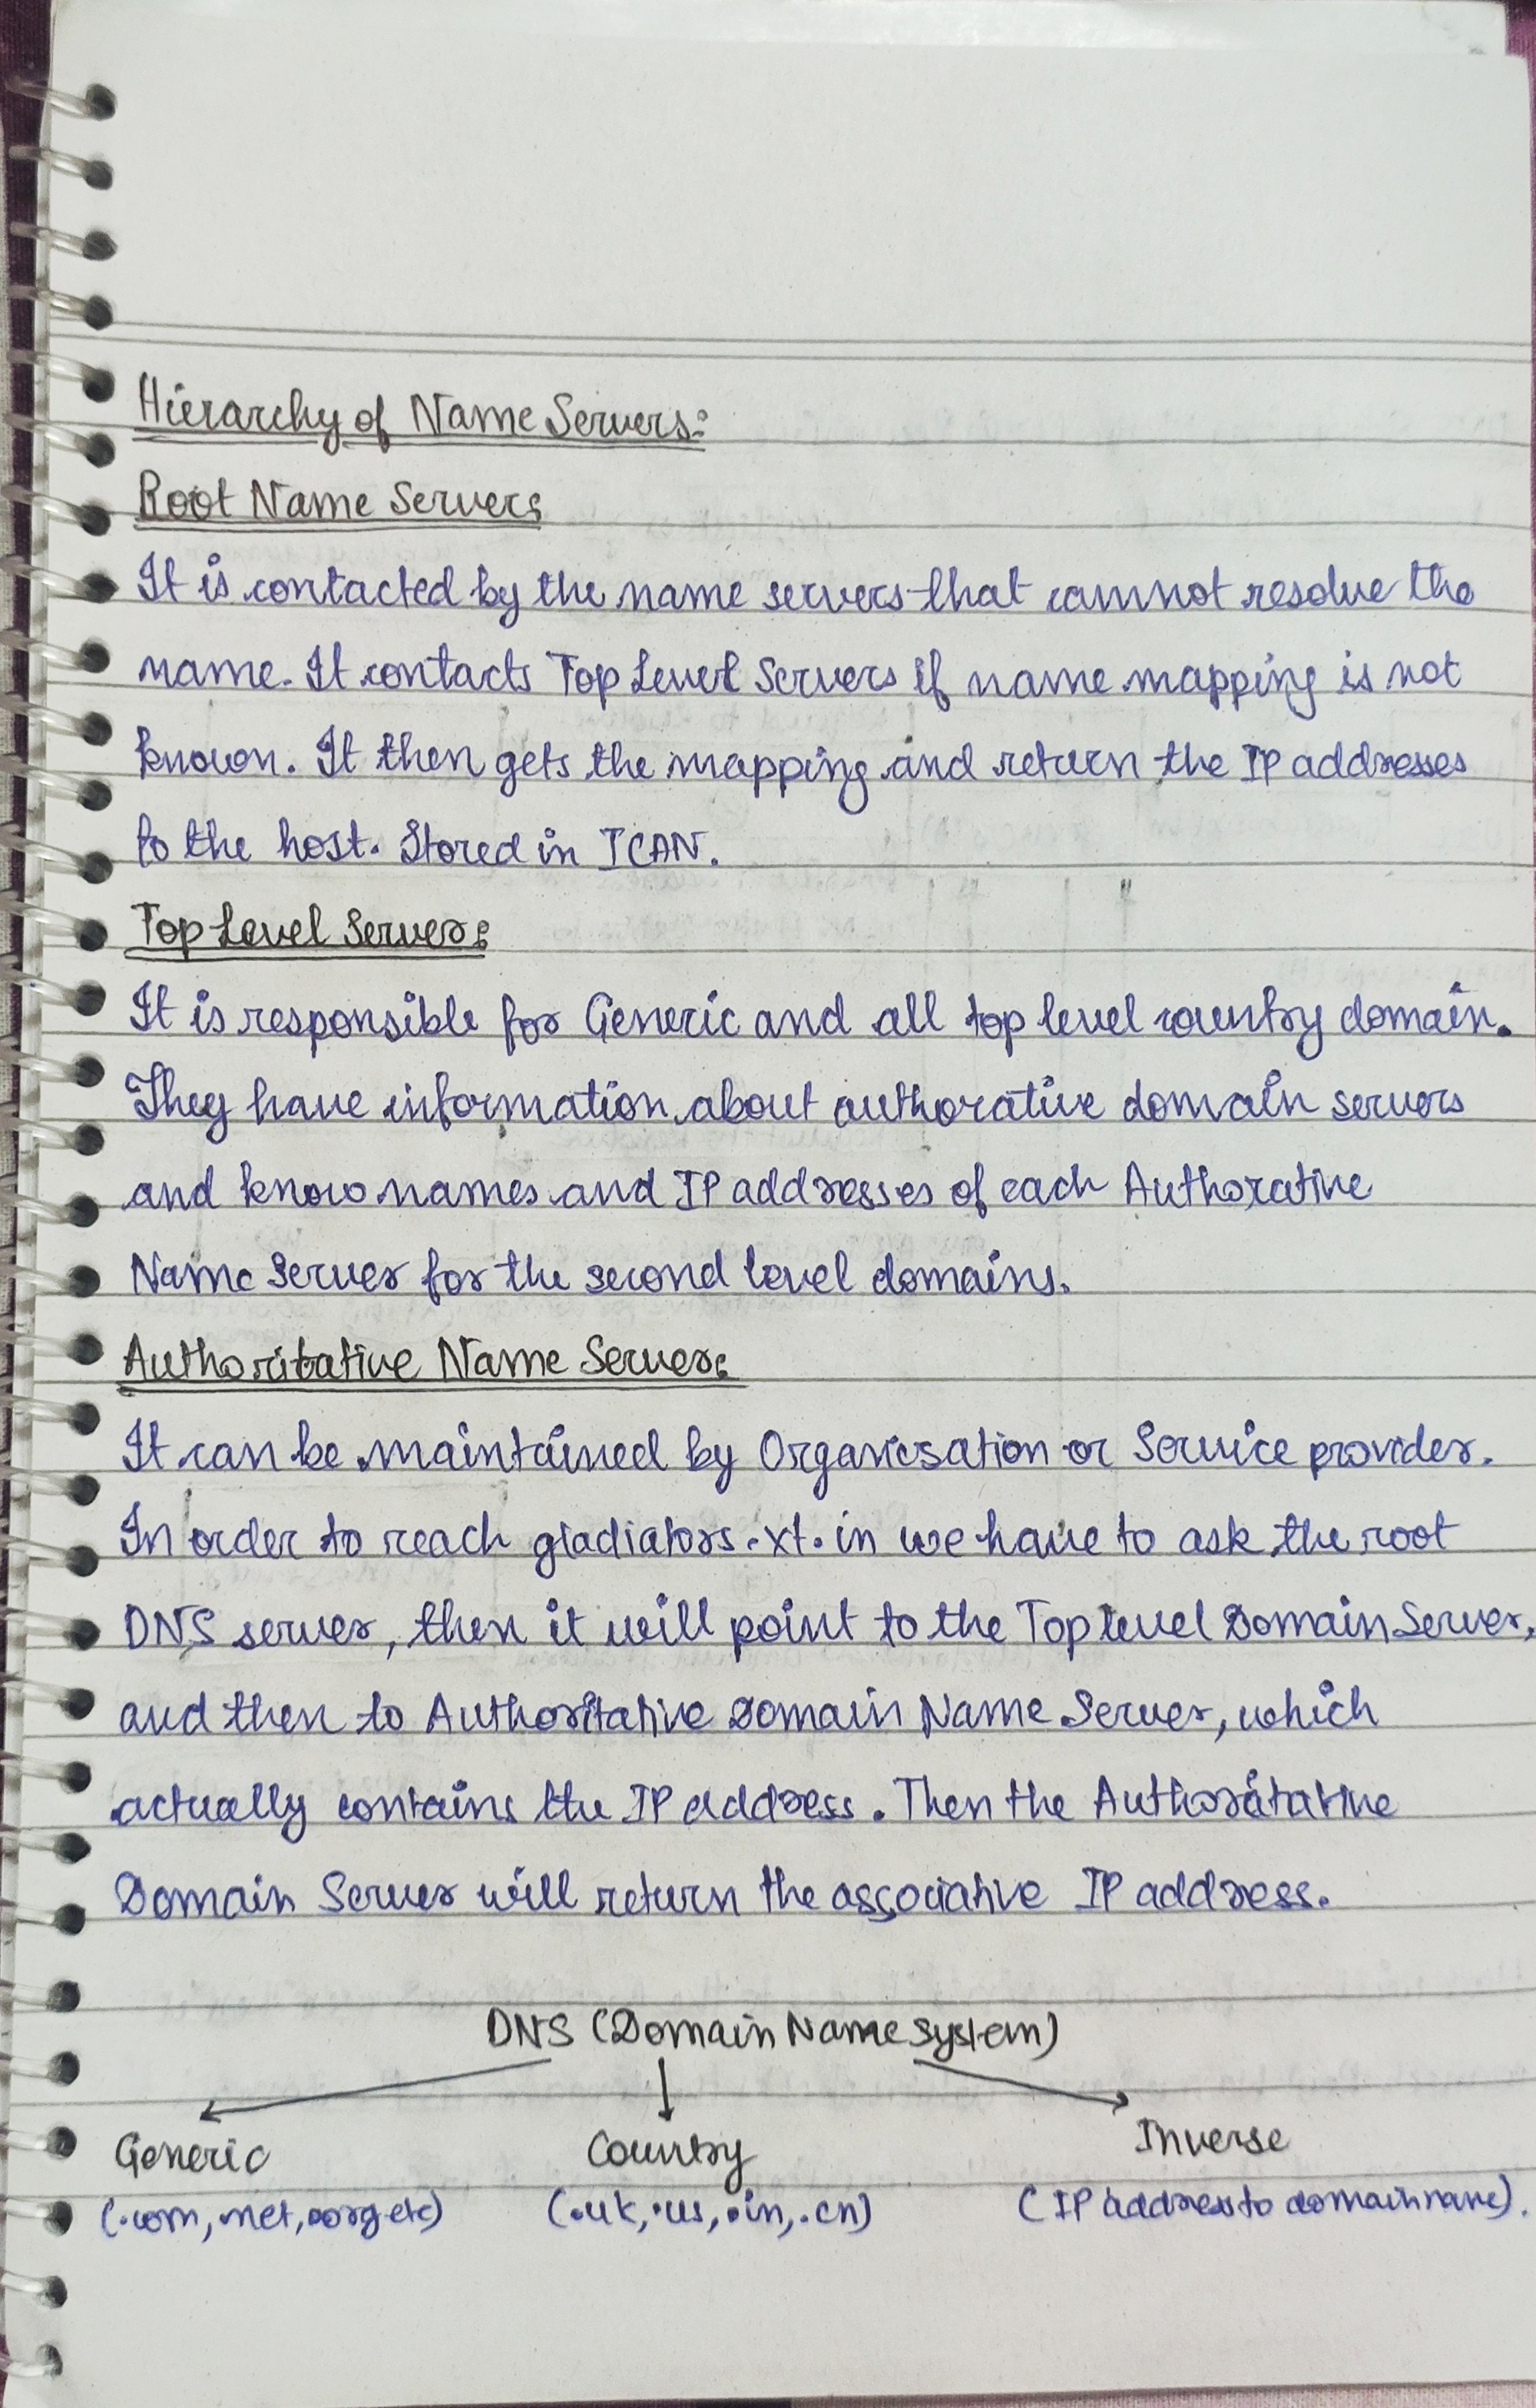 Hierarchy of Name Servers:
Root Name Servers
It is contacted by the name servers that cannot resolve the
name. It contacts Top Level Servers if name mapping is not
known. It then gets the mapping and return the IP addresses
to the host. Stored in ICAN.
Top Level Server:
It is responsible for Generic and all top level country domain.
They have information about authorative domain servers
and know names and IP addresses of each Authorative
Name Server for the second level domains.
Authoritative Name Server:
It can be maintained by Organisation or Service provider.
In order to reach gladiators.xt.in we have to ask the root
DNS server, then it will point to the Top level Domain Server,
and then to Authoritative Domain Name Server, which
actually contains the IP address. Then the Authoritative
Domain Server will return the associative IP address.
DNS (Domain Name System)
Generic Country Inverse
(.com, .net, .org etc) (.uk, .us, .in, .cn) (IP address to domain name).